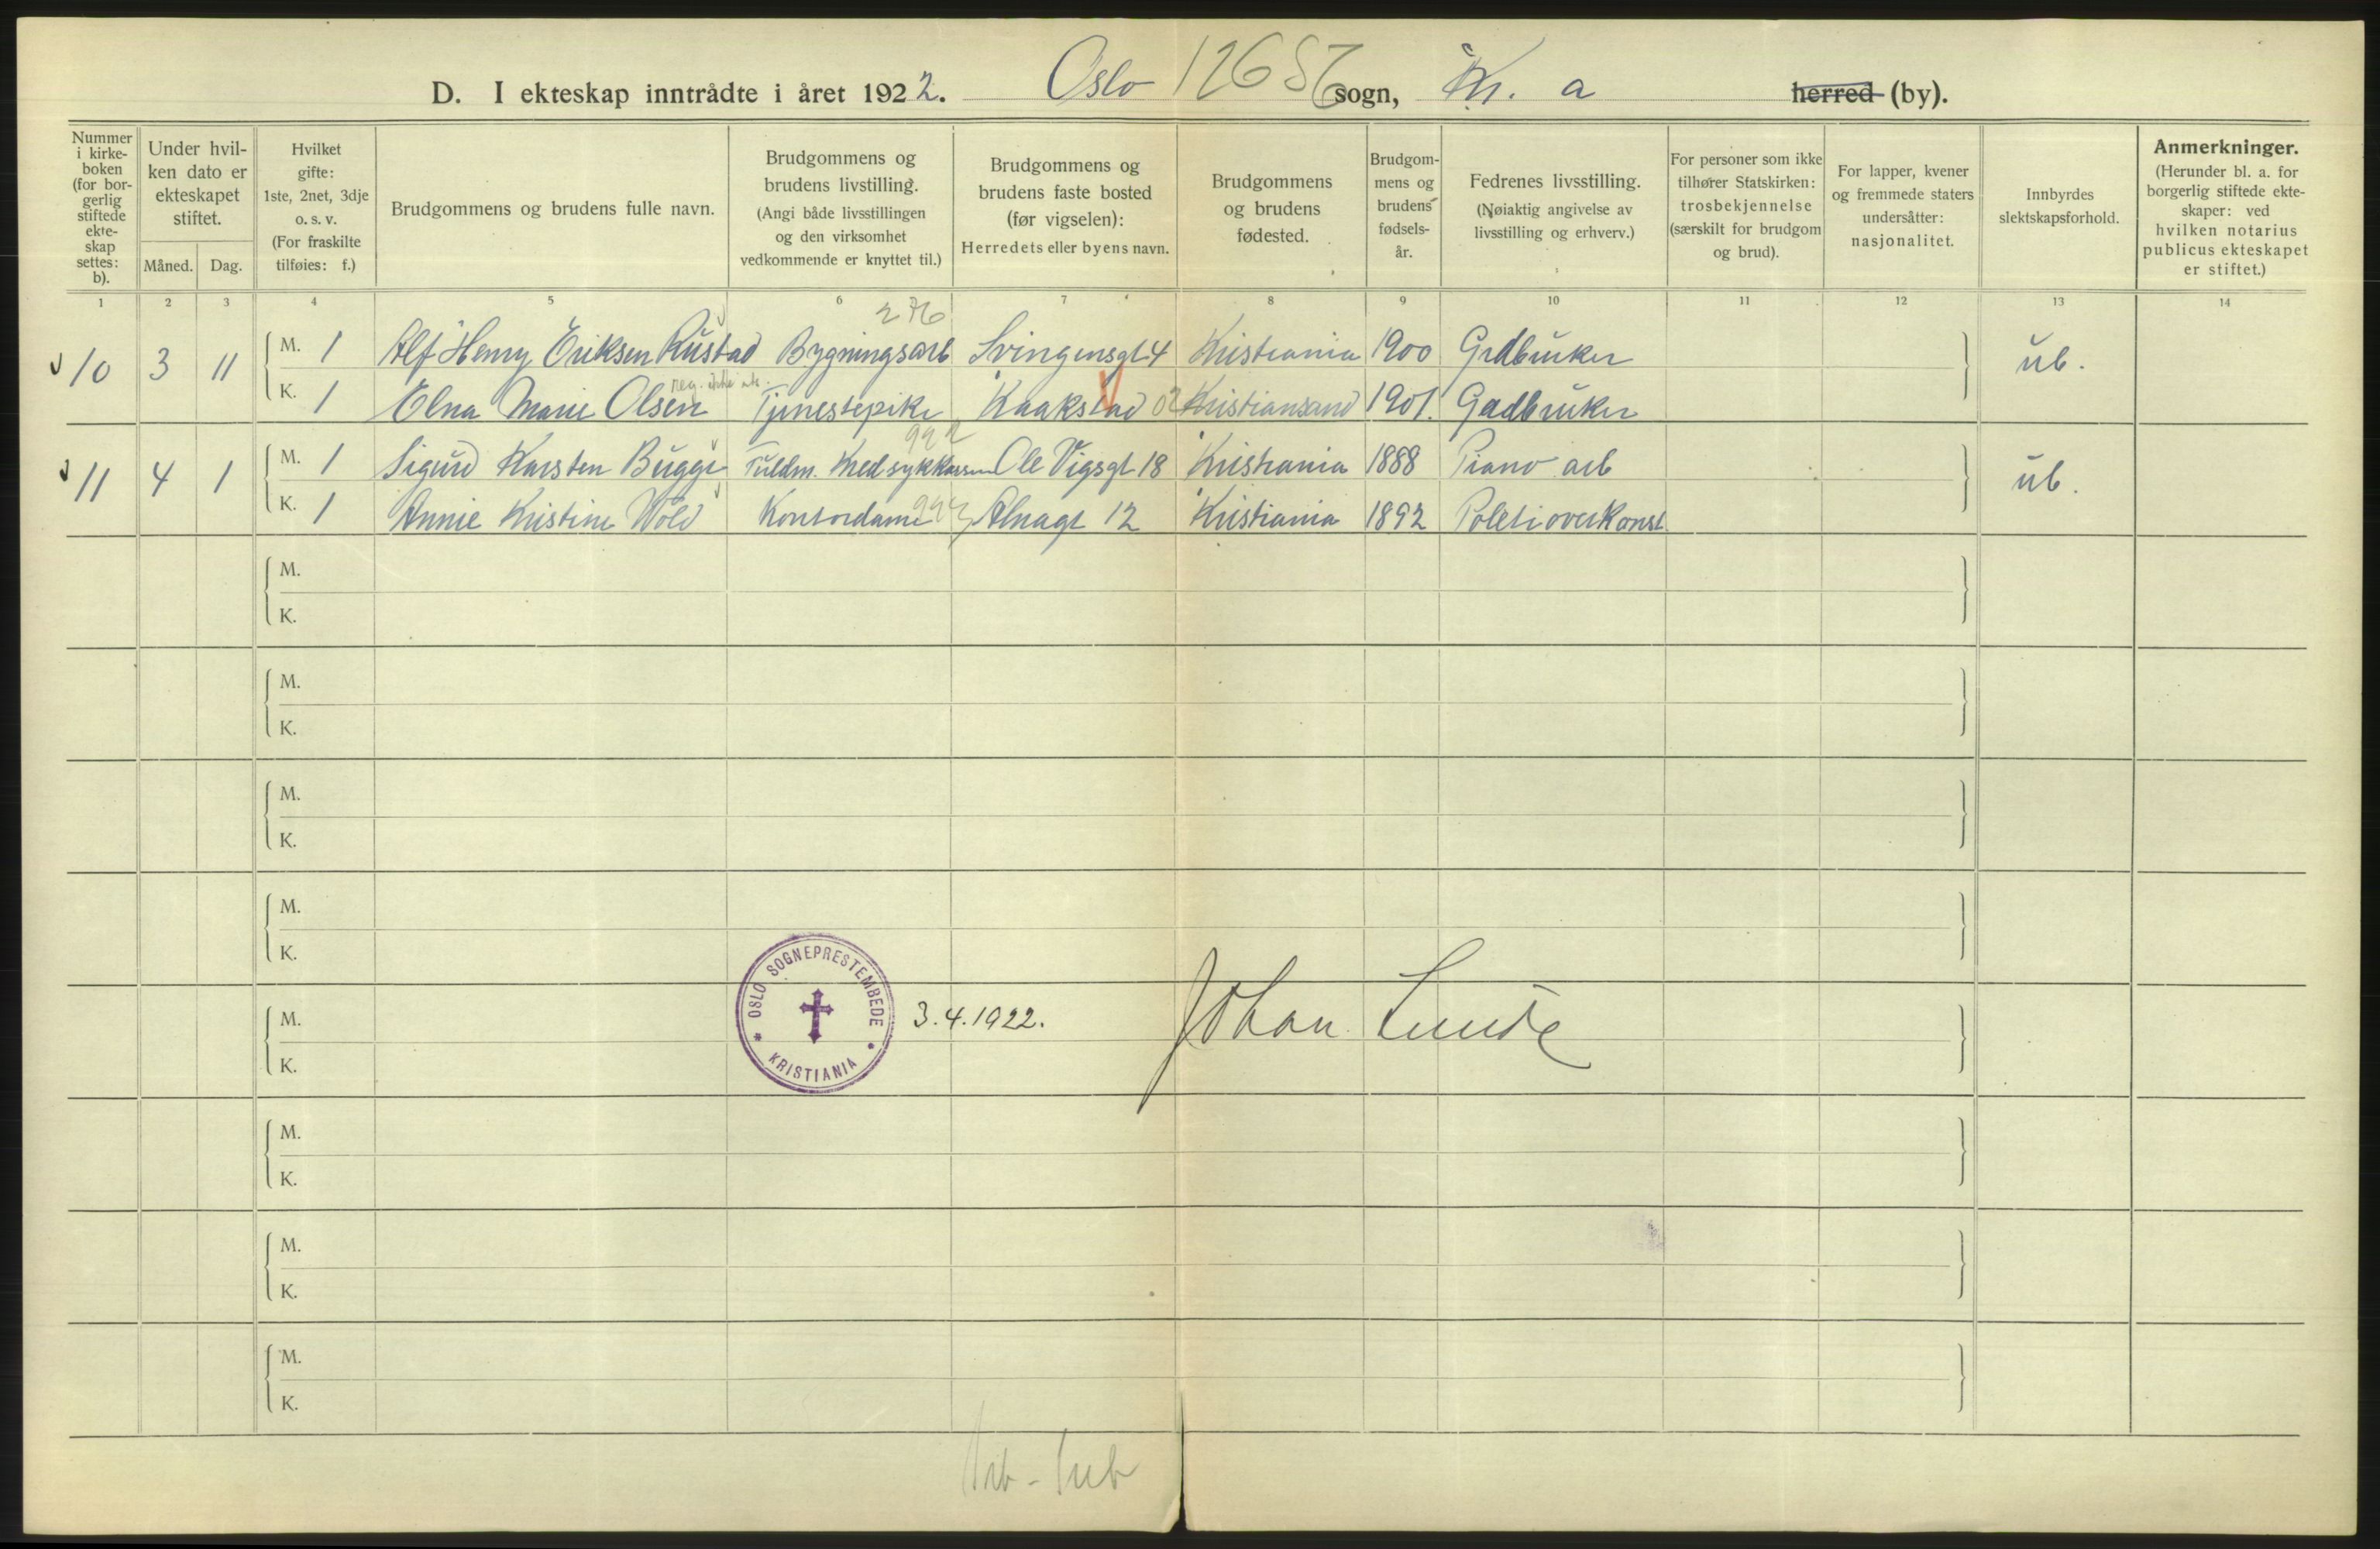 D. I ekteskap inntrådte i året 1922. Oslo sogn, Kr. a herred (by).
Nummer i kirkeboken (for borgerlig stiftede ekteskap settes: b).
Under hvilken dato er ekteskapet stiftet.
Måned.
Dag.
Hvilket gifte: 1ste, 2net, 3dje o. s. v. (For fraskilte tilføies: f.)
Brudgommens og brudens fulle navn.
Brudgommens og brudens livstilling. (Angi både livsstillingen og den virksomhet vedkommende er knyttet til.)
Brudgommens og brudens faste bosted (før vigselen): Herredets eller byens navn.
Brudgommens og brudens fødested.
Brudgommens og brudens fødselsår.
Fedrenes livsstilling. (Nøiaktig angivelse av livsstilling og erhverv.)
For personer som ikke tilhører Statskirken: trosbekjennelse (særskilt for brudgom og brud).
For lapper, kvener og fremmede staters undersåtter: nasjonalitet.
Innbyrdes slektskapsforhold.
Anmerkninger. (Herunder bl. a. for borgerlig stiftede ekteskaper: ved hvilken notarius publicus ekteskapet er stiftet.)
1 2 3 4 5 6 7 8 9 10 11 12 13 14
276
10 3 11 M. 1 Alf Henry Eriksen Rustad Bygningsarb Svingensgt 4 Kristiania 1900 Grdbruker ub.
K. 1 Elna Marie Olsen Tjenestepike Kaakstad 02 Kristiansand 1901. Gadbruker
992
11 4 1 M. 1 Sigurd Karsten Bugge Fuldm. Ole Vigsgt 18 Kristiania 1888 Piano arb ub.
K. 1 Annie Kristine Wold Kontordame 994 Alnagt 12 Kristiania 1892 Politioverkonst.
M.
K.
M.
K.
M.
K.
M.
K.
OSLO SOGNEPRESTEMBEDE
KRISTIANIA
M. 3.4.1922. Johan Lunde
K.
M.
K.
M.
K.
M.
K.